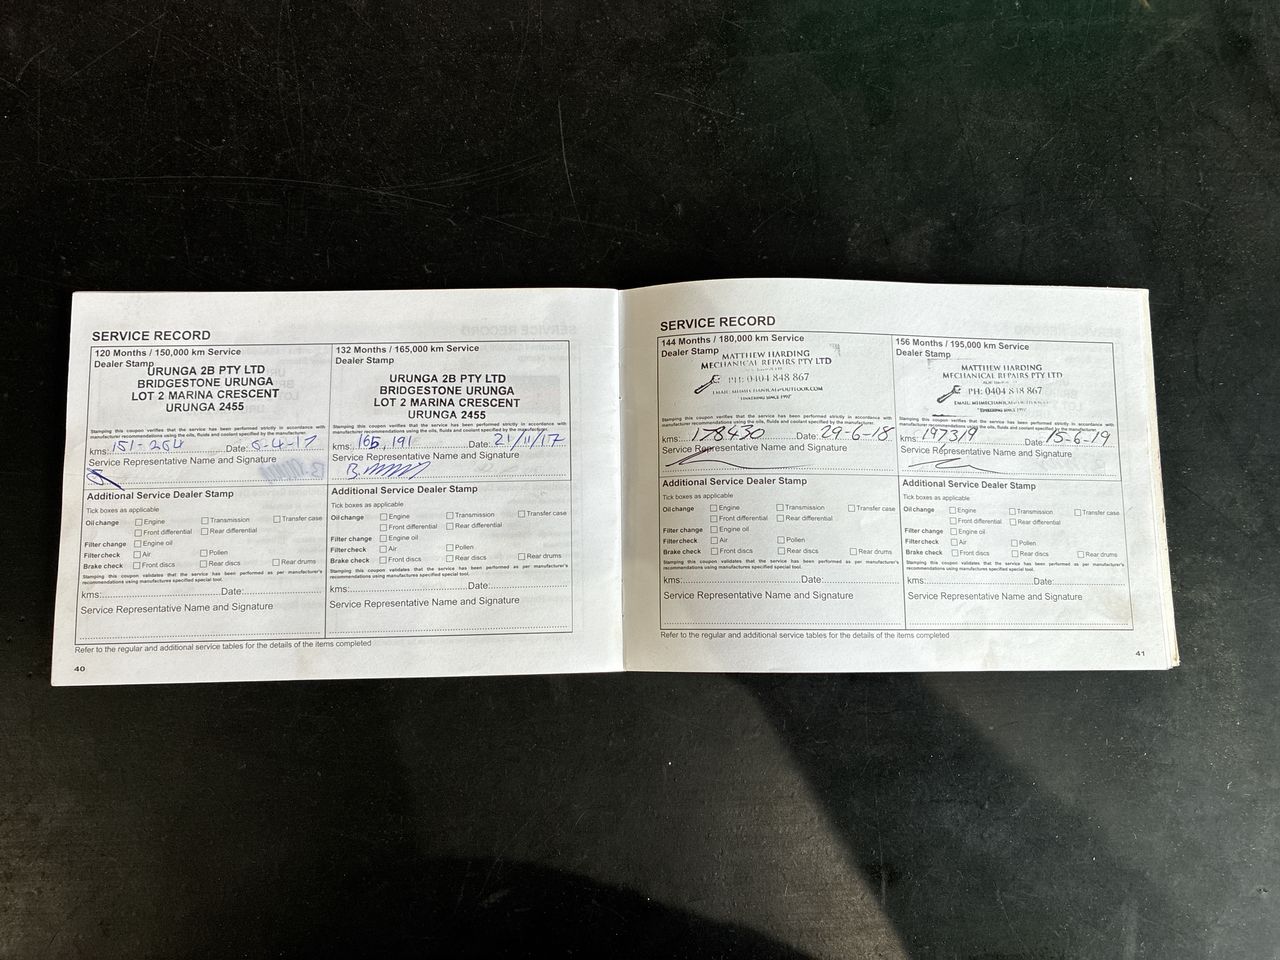 SERVICE RECORD
120 Months / 150,000 km Service
Dealer Stamp
URUNGA 2B PTY LTD
BRIDGESTONE URUNGA
LOT 2 MARINA CRESCENT
URUNGA 2455
Stamping this coupon verifies that the service has been performed strictly in accordance with
manufacturer recommendations using the oils, fluids and coolant specified by the manufacturer.
kms: 151-264 Date: 5-4-17
Service Representative Name and Signature
Additional Service Dealer Stamp
Tick boxes as applicable
Oil change Engine Transmission Transfer case
Front differential Rear differential
Filter change Engine oil
Filter check Air Pollen
Brake check Front discs Rear discs Rear drums
Stamping this coupon validates that the service has been performed as per manufacturer's
recommendations using manufactures specified special tool.
kms: Date:
Service Representative Name and Signature
132 Months / 165,000 km Service
Dealer Stamp
URUNGA 2B PTY LTD
BRIDGESTONE URUNGA
LOT 2 MARINA CRESCENT
URUNGA 2455
Stamping this coupon verifies that the service has been performed strictly in accordance with
manufacturer recommendations using the oils, fluids and coolant specified by the manufacturer.
kms: 165,191 Date: 21/11/17
Service Representative Name and Signature
Additional Service Dealer Stamp
Tick boxes as applicable
Oil change Engine Transmission Transfer case
Front differential Rear differential
Filter change Engine oil
Filter check Air Pollen
Brake check Front discs Rear discs Rear drums
Stamping this coupon validates that the service has been performed as per manufacturer's
recommendations using manufactures specified special tool.
kms: Date:
Service Representative Name and Signature
Refer to the regular and additional service tables for the details of the items completed
40
SERVICE RECORD
144 Months / 180,000 km Service
Dealer Stamp
MATTHEW HARDING
MECHANICAL REPAIRS PTY LTD
PH: 0404 848 867
EMAIL: MHMECHANICAL@OUTLOOK.COM
"TINKERING SINCE 1992"
Stamping this coupon verifies that the service has been performed strictly in accordance with
manufacturer recommendations using the oils, fluids and coolant specified by the manufacturer.
kms: 178430 Date: 29-6-18
Service Representative Name and Signature
Additional Service Dealer Stamp
Tick boxes as applicable
Oil change Engine Transmission Transfer case
Front differential Rear differential
Filter change Engine oil
Filter check Air Pollen
Brake check Front discs Rear discs Rear drums
Stamping this coupon validates that the service has been performed as per manufacturer's
recommendations using manufactures specified special tool.
kms: Date:
Service Representative Name and Signature
156 Months / 195,000 km Service
Dealer Stamp
MATTHEW HARDING
MECHANICAL REPAIRS PTY LTD
PH: 0404 848 867
Stamping this coupon verifies that the service has been performed strictly in accordance with
manufacturer recommendations using the oils, fluids and coolant specified by the manufacturer.
kms: 197319 Date: 15-6-19
Service Representative Name and Signature
Additional Service Dealer Stamp
Tick boxes as applicable
Oil change Engine Transmission Transfer case
Front differential Rear differential
Filter change Engine oil
Filter check Air Pollen
Brake check Front discs Rear discs Rear drums
Stamping this coupon validates that the service has been performed as per manufacturer's
recommendations using manufactures specified special tool.
kms: Date:
Service Representative Name and Signature
Refer to the regular and additional service tables for the details of the items completed
41